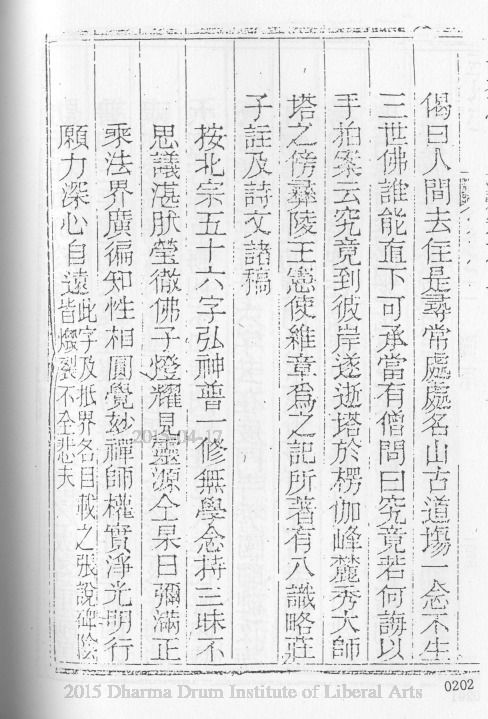 偈曰人間去住是尋常處處名山古道場一念不生
三世佛誰能直下可承當有僧問曰究竟若何誨以
手拍案云究竟到彼岸遂逝塔於楞伽峰麓秀大師
塔之傍彞陵王憲使維章爲之記所著有八識略莊
子註及詩文諸稿
按北宗五十六字弘神普一修無學念持三昧不
思議湛肰瑩徹佛子燈耀見靈源仝杲日彌滿正
乘法界廣徧知性相圓覺妙禪師權實淨光明行
願力深心自遠此字及抵界各目載之張說碑陰
皆燬裂不全悲夫
2015-04-17
0202
2015 Dharma Drum Institute of Liberal Arts